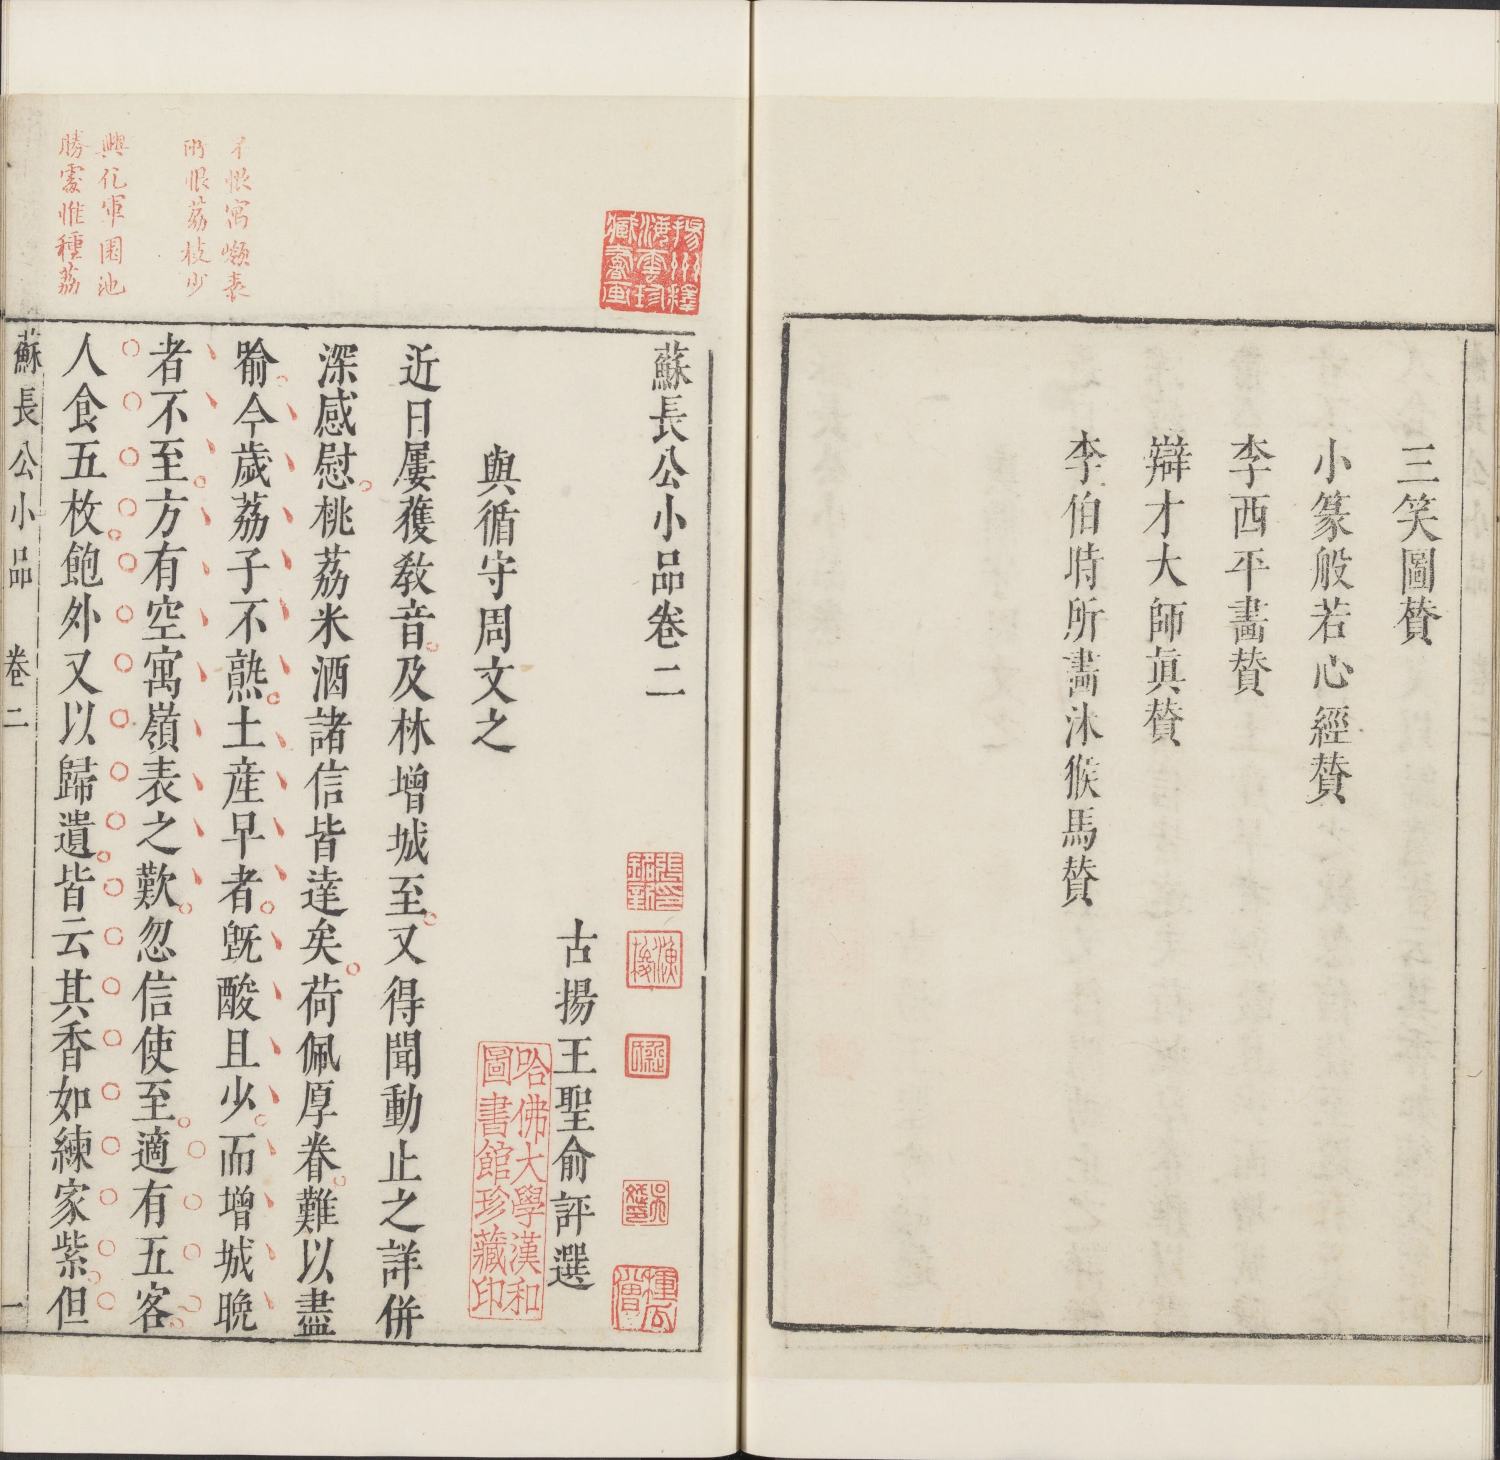 三笑圖贊
小篆般若心經贊
李西平畵贊
辯才大師眞贊
李伯時所畵沐猴馬贊
蘇長公小品卷二
古揚王聖俞評選
與循守周文之
近日屢獲教音及林增城至又得聞動止之詳併
深感慰桃荔米酒諸信皆達矣荷佩厚眷難以盡
喻今歲荔子不熟土産早者旣酸且少而增城晚
者不至方有空寓嶺表之歎忽信使至適有五客
人食五枚飽外又以歸遺皆云其香如練家紫但
不恨寓嶺表
所恨荔枝少
興化軍園池
勝處惟種荔
蘇長公小品 卷二 一
揚州釋
海雲珍
藏書画
哈佛大學漢和
圖書館珍藏印